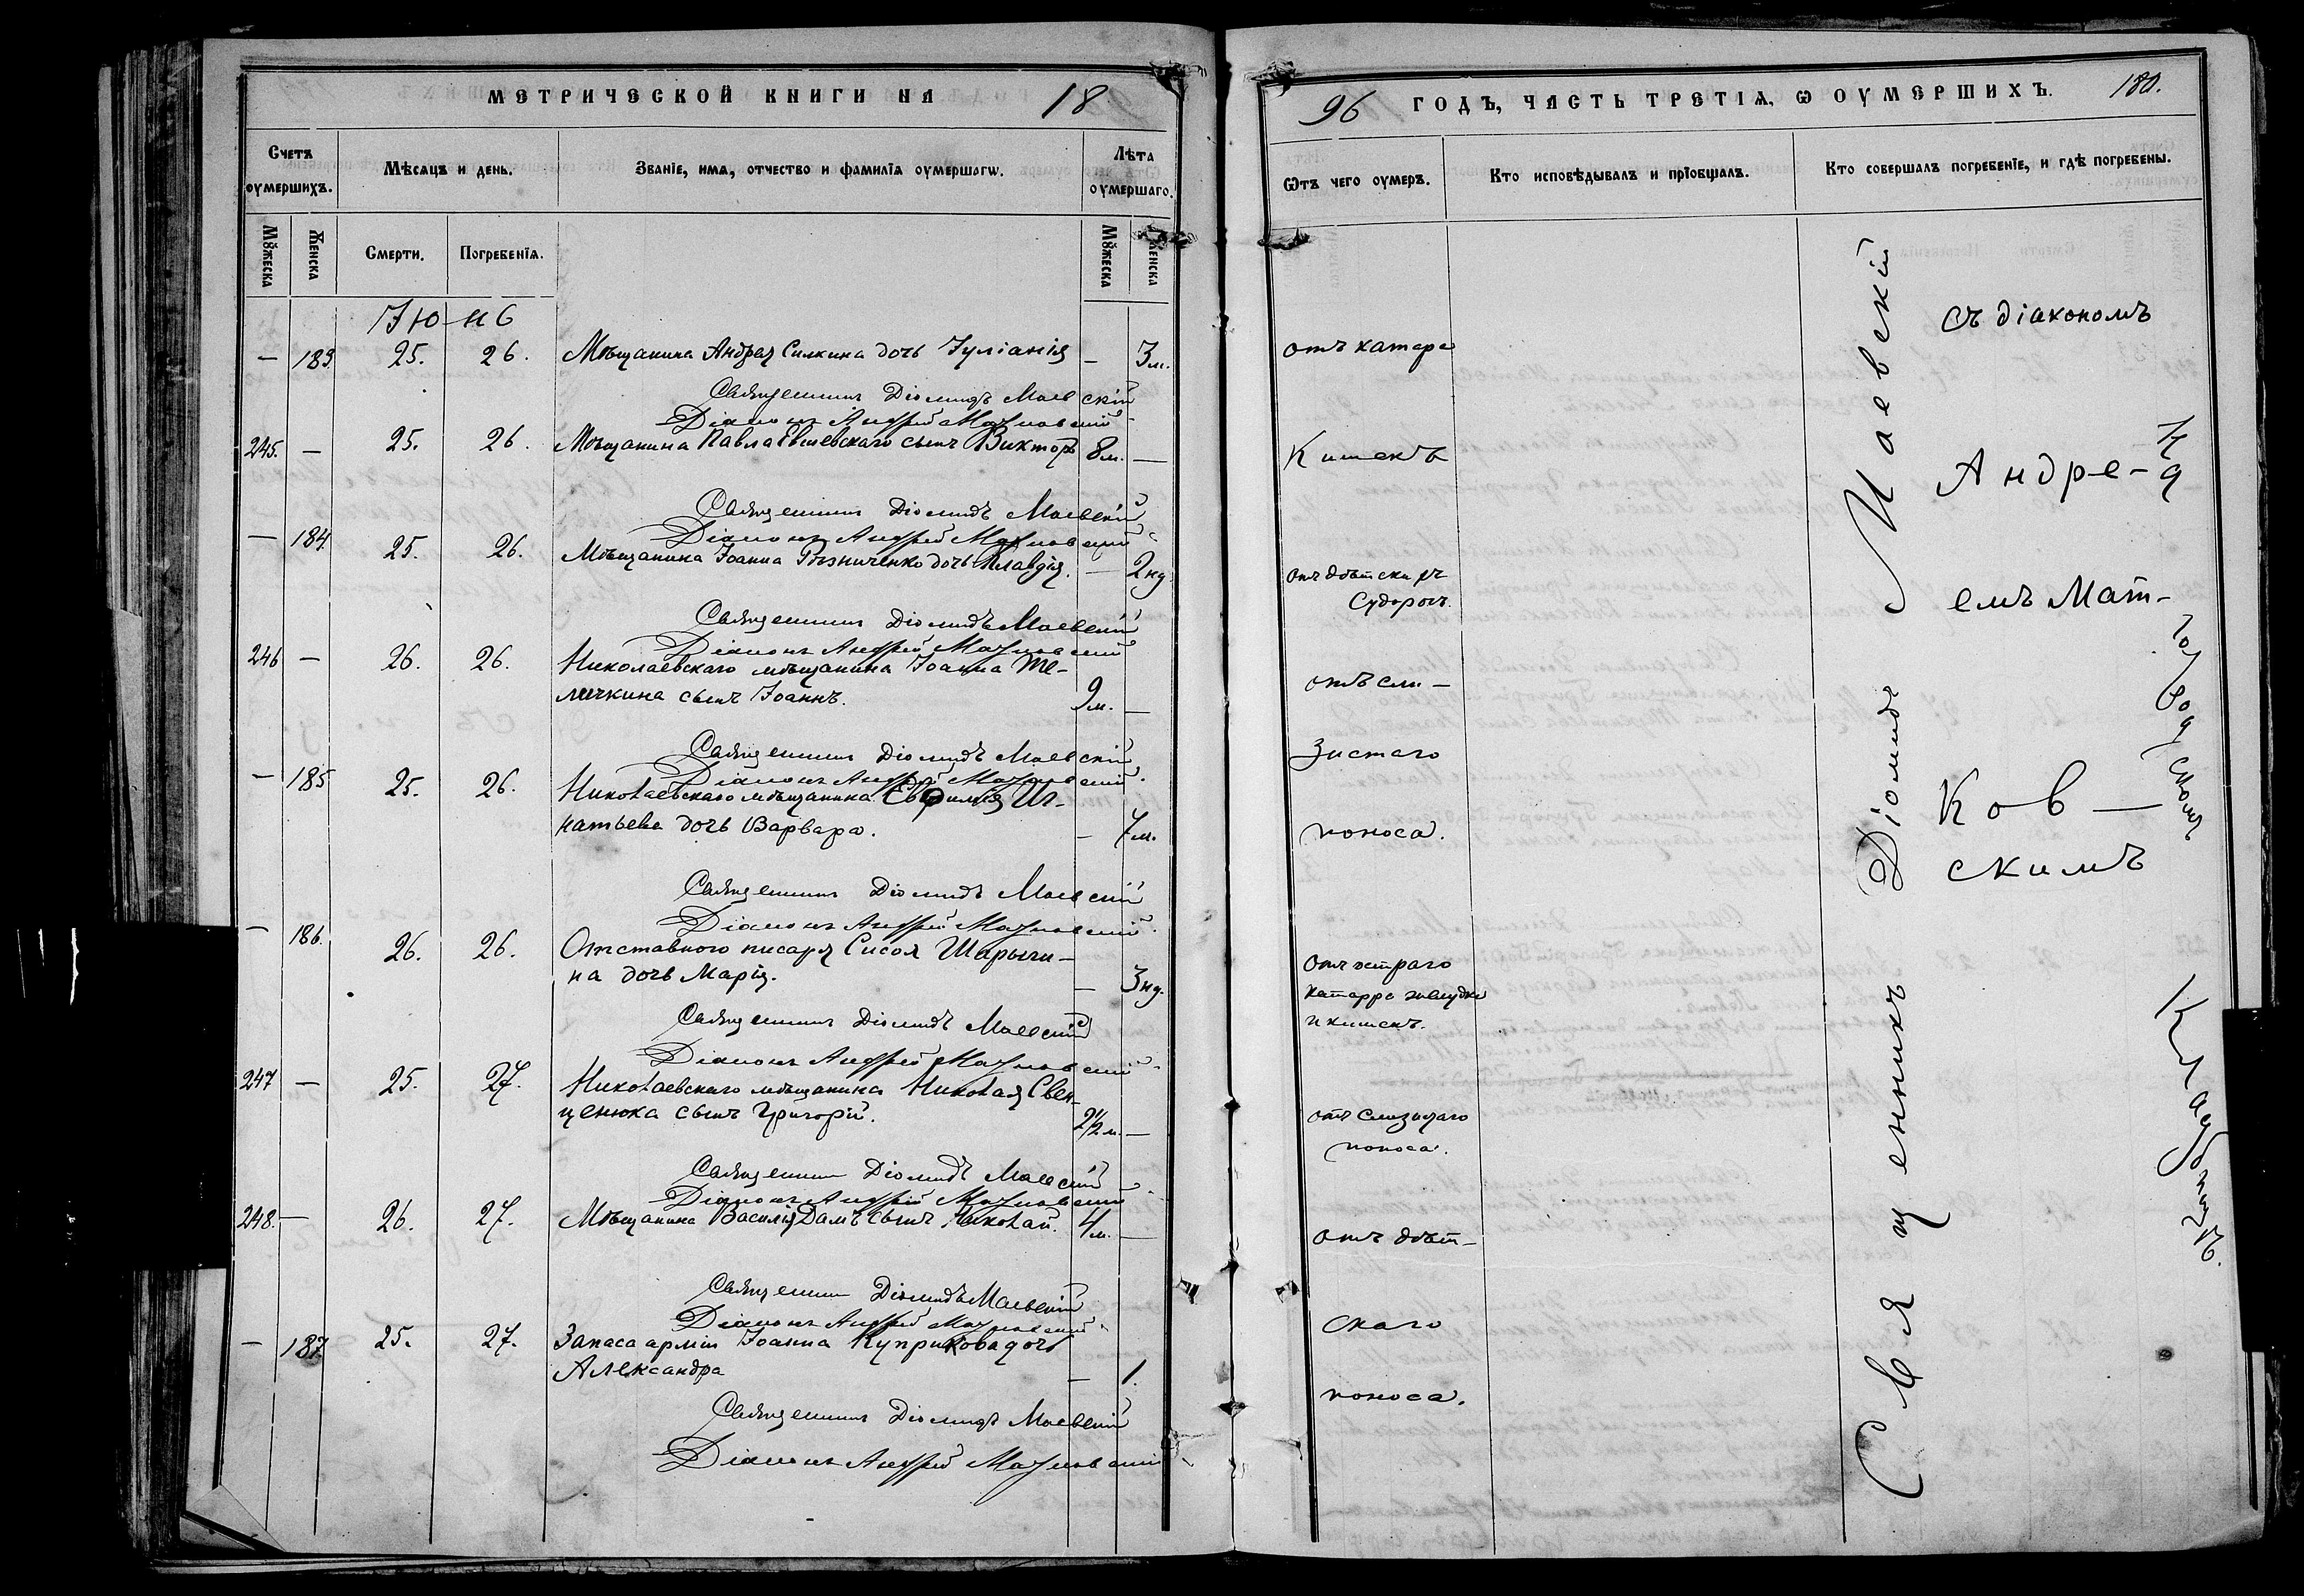 МЕТРИЧЕСКОЙ КНИГИ НА 18
Счетъ оумершихъ.
Мѣсяцъ и день.
Званіе, имя, отчество и фамилія оумершагѡ.
Лѣта оумершаго.
Мꙋжеска
Женска
Смерти.
Погребенія.
Мꙋжеска
Женска
Июнь
— 183. 25. 26. Мѣщанина Андрея Силкина дочь Іуліанія — 3 м.
Священникъ Діомидъ Маевскій
Діаконъ Андрей Матковскій
245. — 25. 26. Мѣщанина Павла сынъ Викторъ 8 м. —
Священникъ Діомидъ Маевскій
Діаконъ Андрей Матковскій
— 184. 25. 26. Мѣщанина Іоанна Рѣзниченко дочь Клавдія. — 2 нд
Священникъ Діомидъ Маевскій
Діаконъ Андрей Матковскій
246 — 26. 26. Николаевскаго мѣщанина Іоанна Те-
личкина сынъ Іоаннъ. 9 м. —
Священникъ Діомидъ Маевскій
Діаконъ Андрей Матковскій
— 185 25. 26. Николаевскаго мѣщанина Евфимія Иг-
натьева дочь Варвара. — 7 м.
Священникъ Діомидъ Маевскій
Діаконъ Андрей Матковскій
— 186. 26. 26. Отставного писаря Сисоя Шарыги-
на дочь Марія. — 3 нд.
Священникъ Діомидъ Маевскій
Діаконъ Андрей Матковскій
247 — 25. 27. Николаевскаго мѣщанина Николая Свен-
ценюка сынъ Григорій. 2½ м. —
Священникъ Діомидъ Маевскій
Діаконъ Андрей Матковскій
248. — 26. 27. Мѣщанина Василія Дамъ сынъ Николай. 4 м. —
Священникъ Діомидъ Маевскій
Діаконъ Андрей Матковскій
— 187. 25. 27. Запаса арміи Іоанна Куприкова дочь
Александра — 1.
Священникъ Діомидъ Маевскій
Діаконъ Андрей Матковскій
96 ГОДЪ, ЧАСТЬ ТРЕТІѦ, Ѡ ОУМЕРШИХЪ. 180.
Ѿтъ чего оумеръ.
Кто исповѣдывалъ и пріобщалъ.
Кто совершалъ погребеніе, и гдѣ погребены.
отъ катара
Кишекъ
отъ дѣтскихъ
Судорогъ.
отъ сли-
зистаго
поноса.
отъ остраго
катарра желудка
и кишекъ.
отъ слизистаго
поноса.
отъ дѣт-
скаго
поноса.
Священникъ Діомидъ Маевскій
съ діакономъ
Андре-
емъ Мат-
ков-
скимъ
На городскомъ
Кладбищѣ.